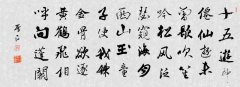 十五遊神
僊仙遊未
曾歇吹笙
吟松風泛
瑟窺海月
西山玉童
子使我煉
金骨欲逐
黃鶴飛相
呼向蓬闕